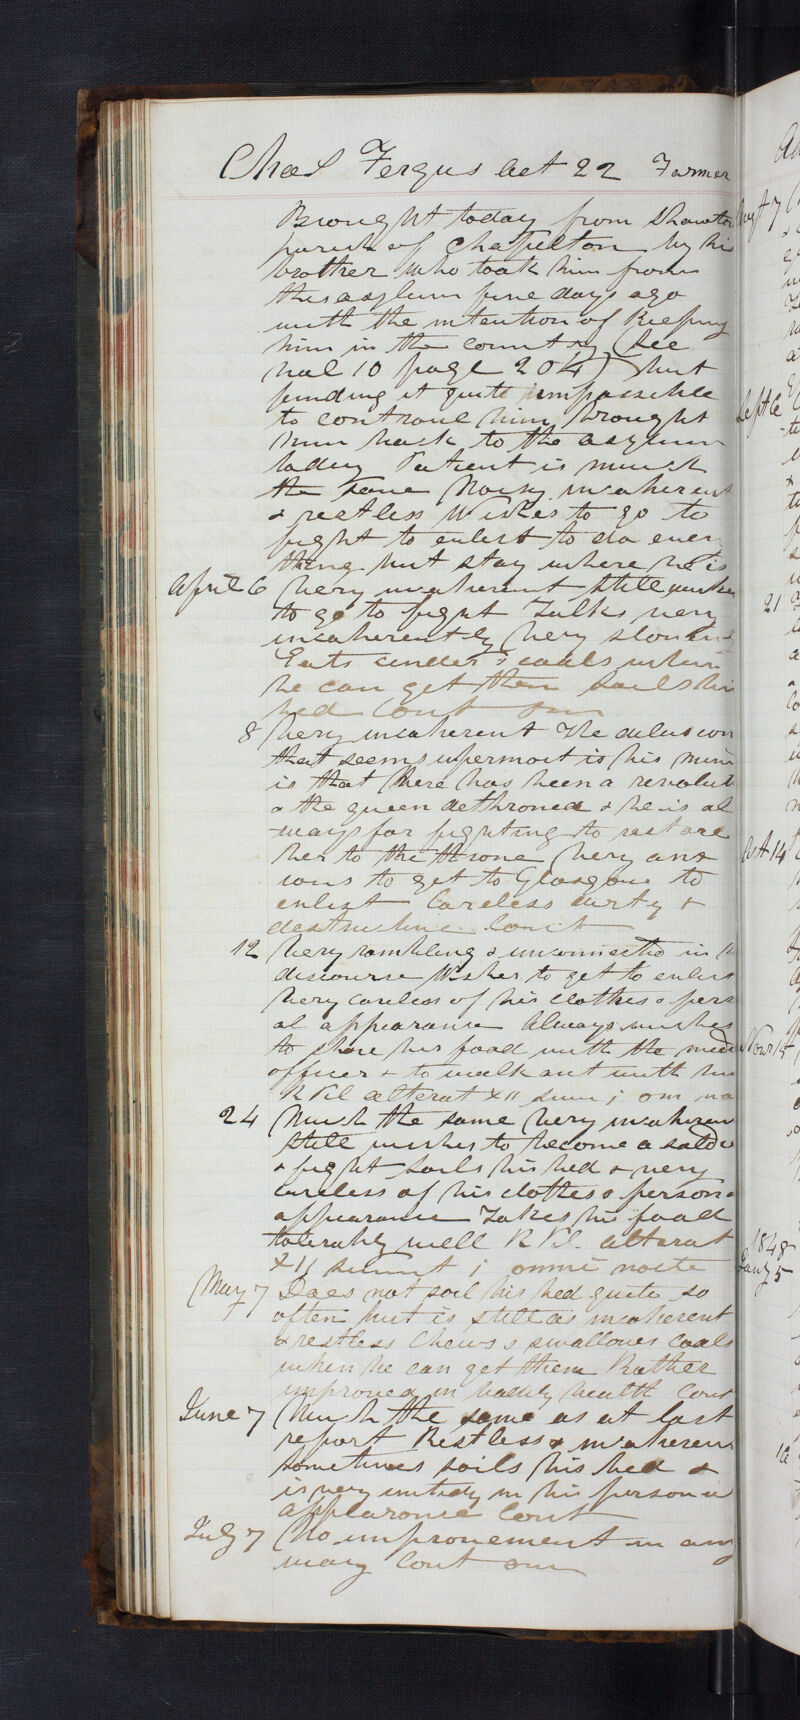 Chas Fergus aet 22 Farmer
Brought today from Shawton
parish of Chapelton by his
brother who took him from
this asylum five days ago
with the intention of Keeping
him in the country (See
vol 10 page 204) but
finding it quite impossible
to controul him brought
him back to the asylum
today Patient is much
the same Noisy incoherent
& restless Wishes to go to
fight to enlist to do every
thing but stay where he is
April 6 Very incoherent Still wishes
to go to fight Talks very
incoherently Very
Eats cinders & coals when
he can get them Soils his
bed Cont om
8 Very incoherent The delusion
that seems upermost is his mind
is that there has been a revolut
& the queen dethroned & he is al
ways for fighting to restore
her to the throne Very anx
ious to get to Glasgow to
enlist Careless dirty &
destructive Cont
12 Very rambling & unconnected in
discourse Wishes to get to enlist
Very careless of his clothes & pers
al appearance Always wishes
to share his food with the med
officer & to walk out with him
R Pil alterat xii sum i om no
24 Much the same Very incoheren
Still wishes to become a soldie
& fight Soils his bed & very
careless of his clothes & person
appearance Takes his food
tolerably well R Pil. alterat
xii sumt i omni nocte
May 7 Does not soil his bed quite so
often but is still as incoherent
& restless Chews & swallows coals
when he can get them Rather
improved in bodily health Cont
June 7 Much the same as at last
report Restless & incoheren
Sometimes soils his bed &
is very untidy in his person
appearance Cont
July 7 No improvement in any
way Cont om
Augt 7
Sept 6
21
Oct 14
Novr 15
1848
Jany 5